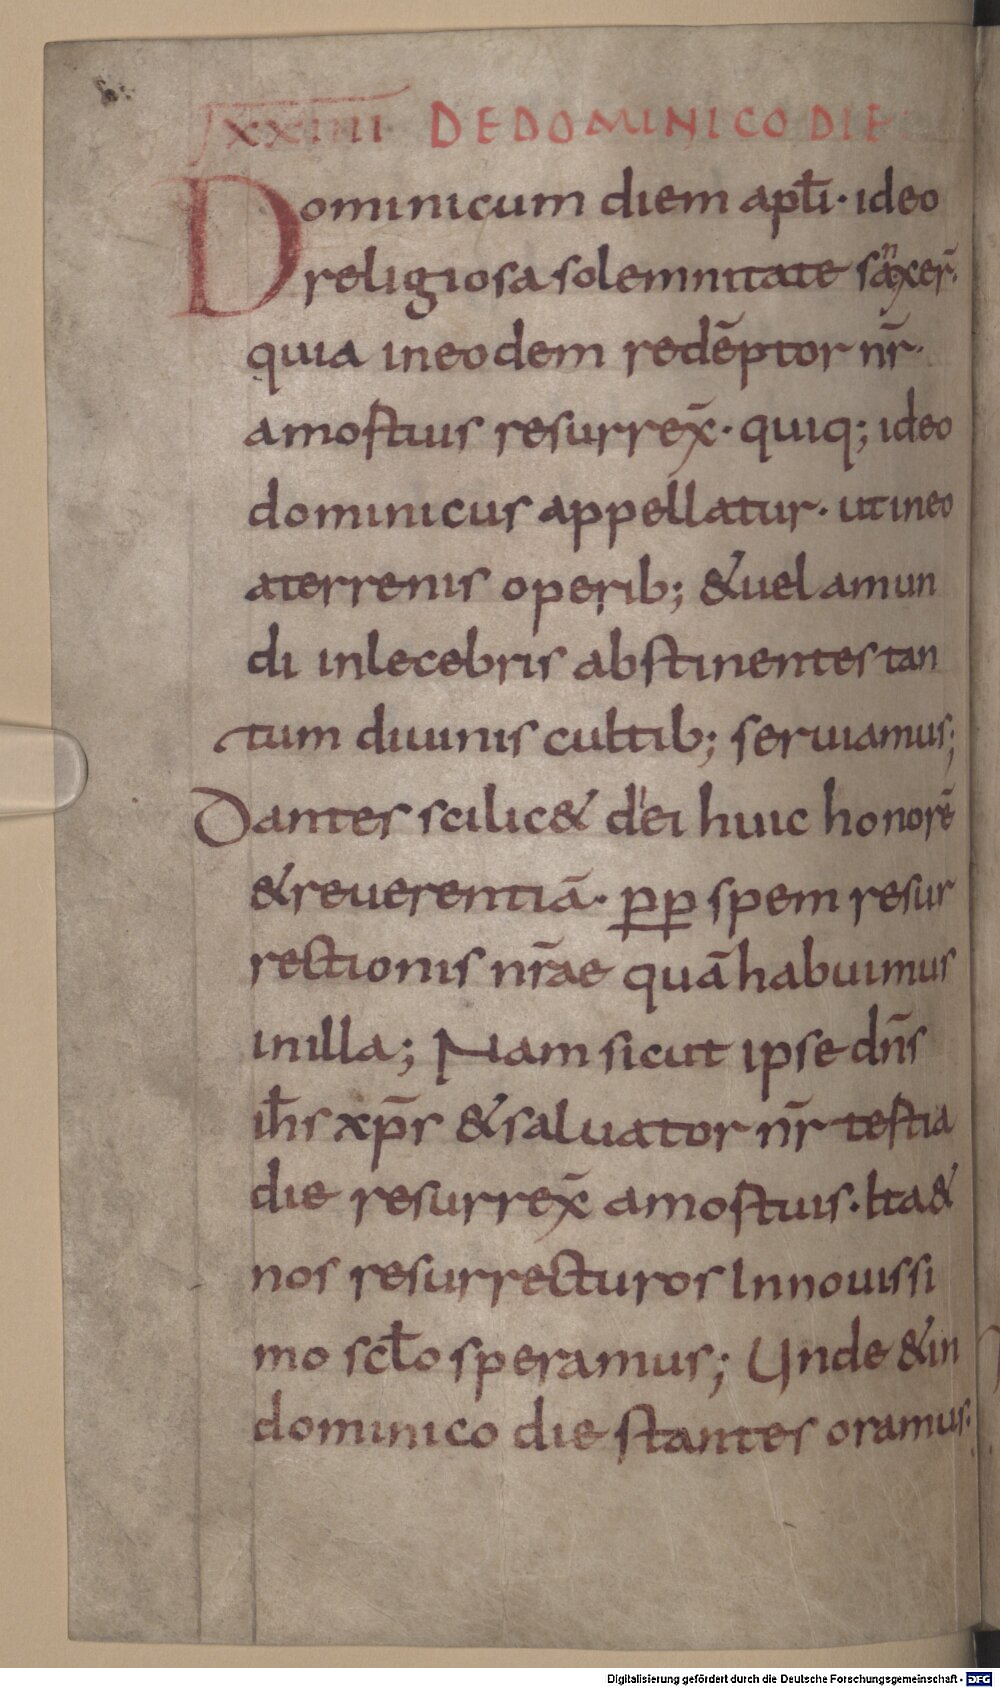 LXXIIII DE DOMINICO DIE
Dominicum diem apłi· ideo
religiosa solemnitate sãxer̄·
quia in eodem redēptor nr̄·
a mostuis resurrex̄· quiq; ideo
dominicus appellatur· ut in eo
a terrenis operib; & uel a mun
di inlecebris abstinentes tan
tum diuinis cultib; seruiamus;
Dantes scilic& d'ei huic honorē
& reuerentiā· ꝓꝑ spem resur
rectionis nr̄ae quā habuimus
in illa; Nam sicut ipse dn̄s
ih̄s xp̄s & saluator nr̄ testia
die resurrex̄ a mostuis· Ita &
nos resurrecturos In nouissi
mo scło speramus; Unde & in
dominico die stantes oramus·
Digitalisierung gefördert durch die Deutsche Forschungsgemeinschaft - DFG